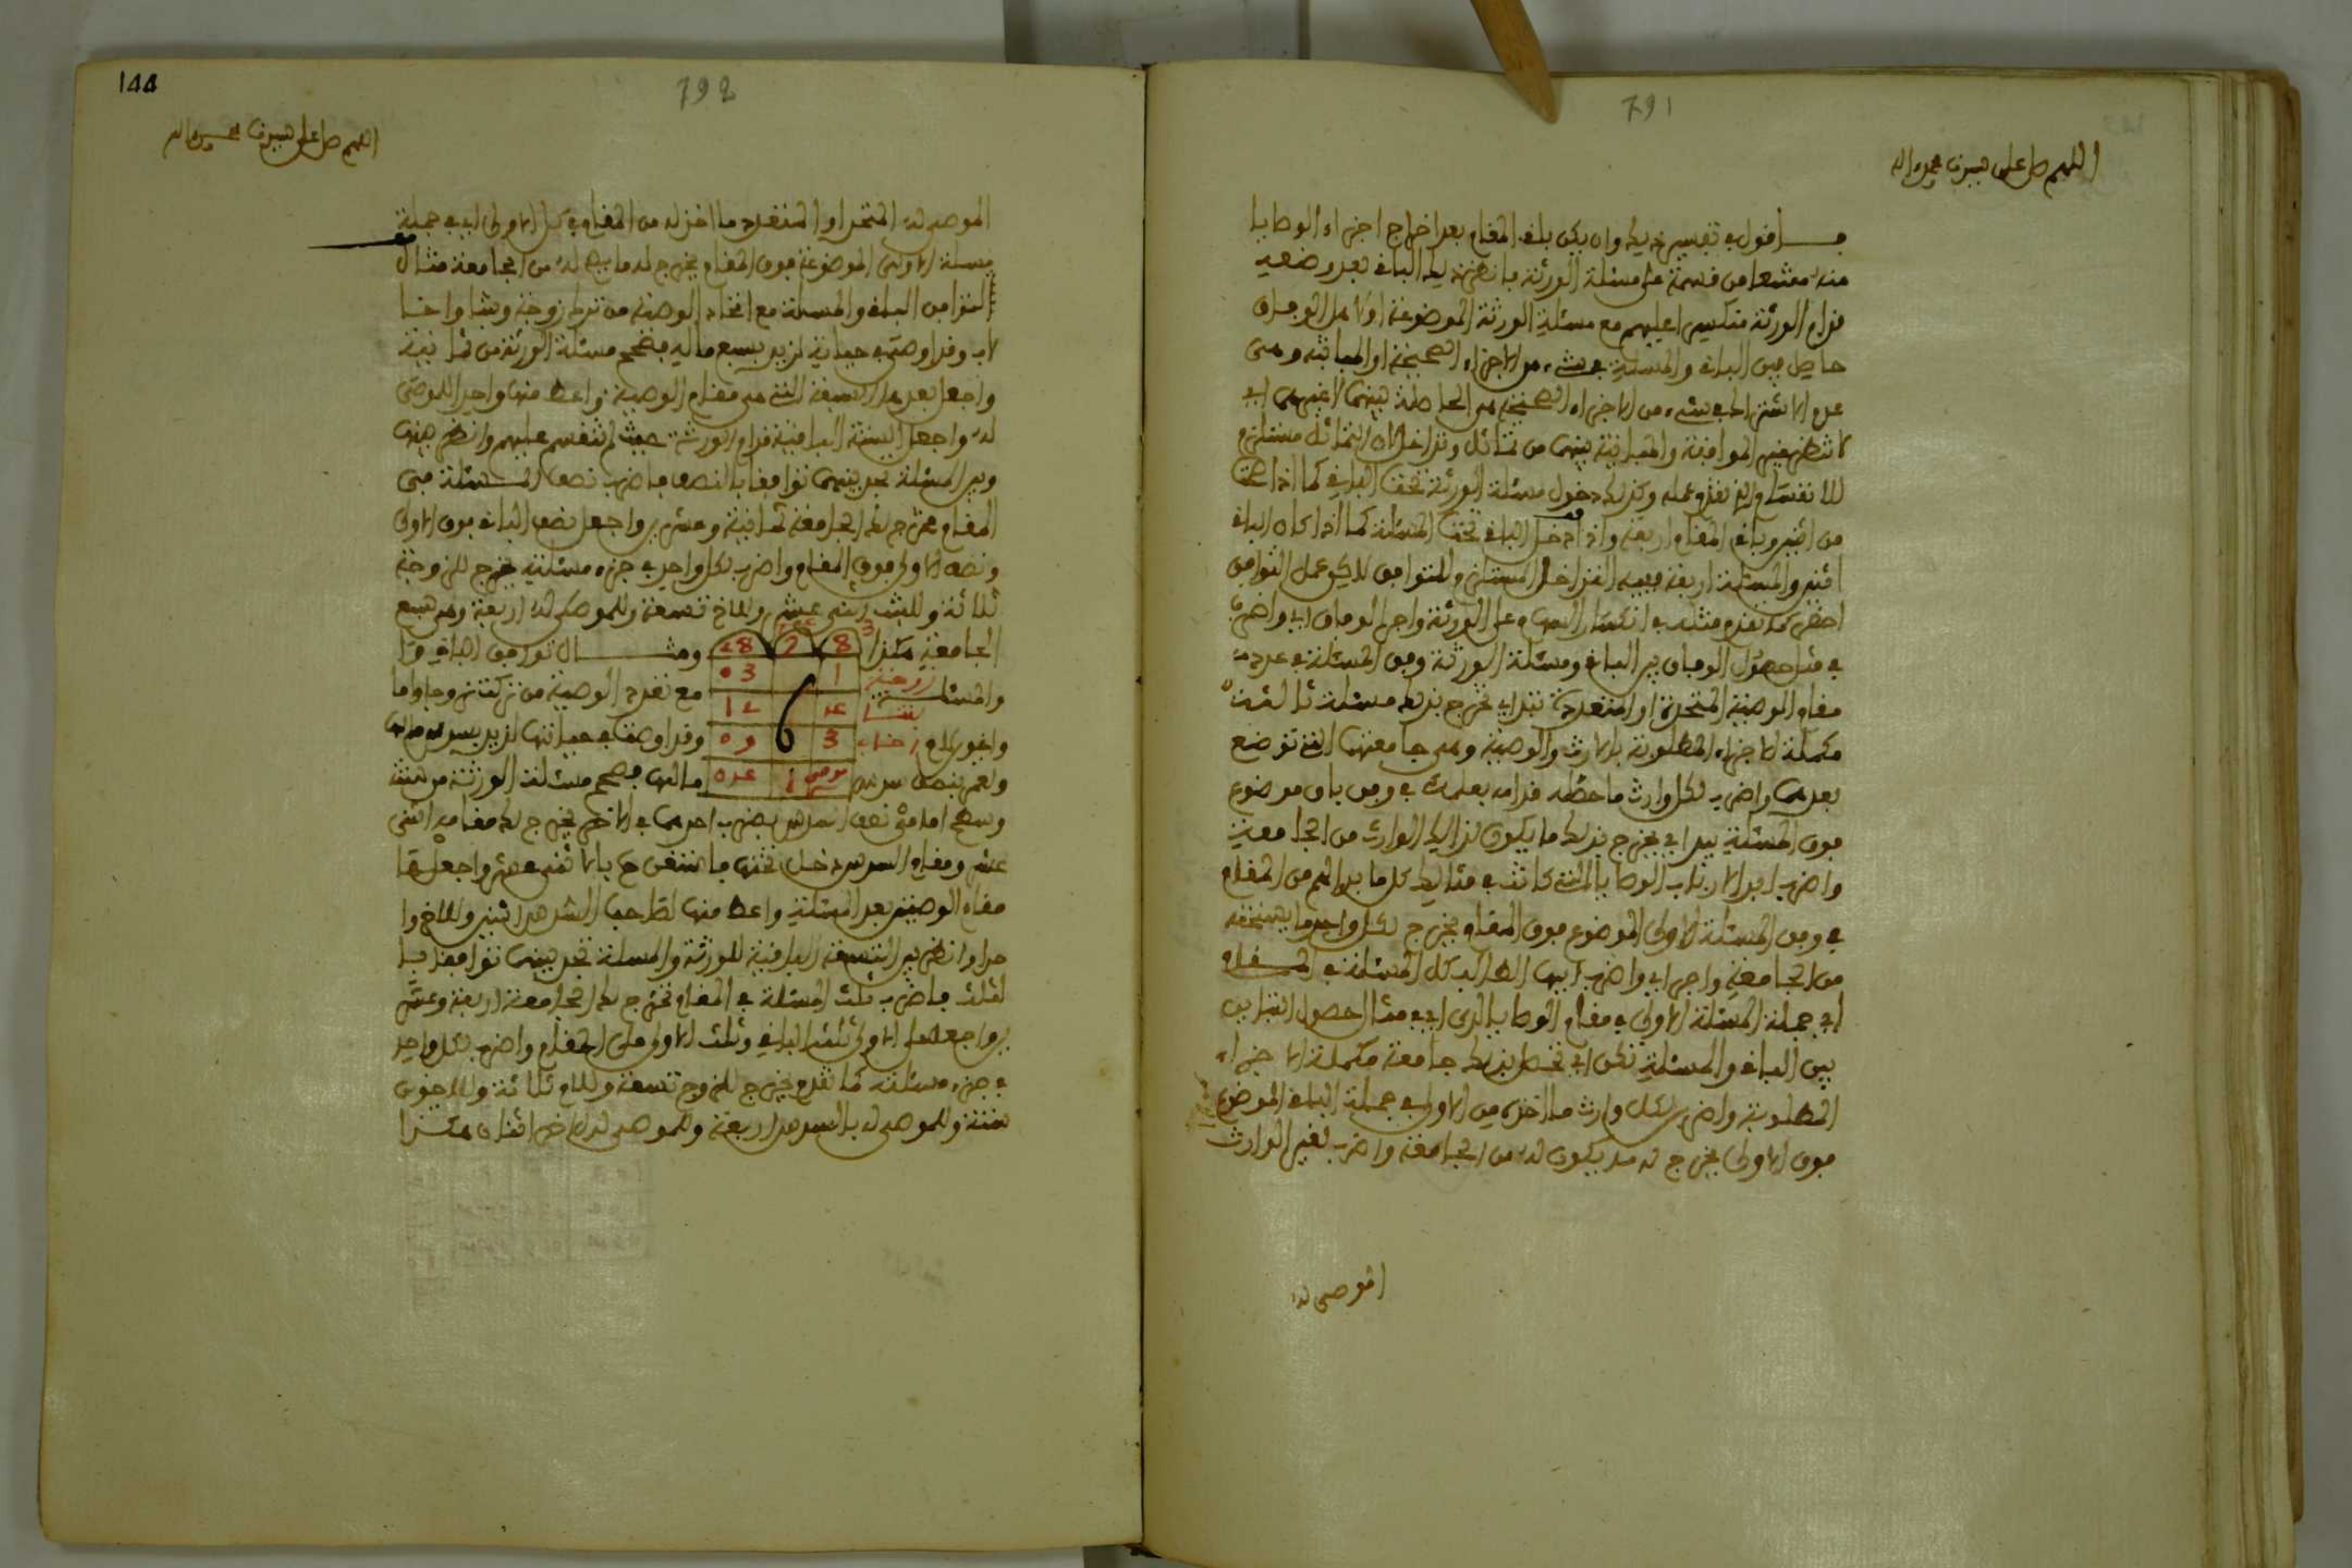 791
اللهم صل على سيدنا محمد واله
فاقول في تفسير ذلك وان يكن باقي المقام بعد اخراج اجزاء الوصايا
منه ممتنعا من قسمة على مسئلة الورثة فانظر ذلك الباقي بعد وضعه
قدام الورثة منكسرا عليهم مع مسئلة الورثة الموضوعة اولا هل الوفاق
حاصل بين الباقي والمسئلة في شيء من الاجزاء الصحيحة او المباينة وهي
عدم الاشتراك في شيء من الاجزاء الصحيحة هي الحاصلة بينهما لا غيرهما اي
لا تنظر غير الموافقة والمباينة بينهما من تماثل وتداخل لان التماثل مستلزم
للانقسام والذي تقدم عمله وكذلك دخول مسئلة الورثة تحت الباقي كما اذا صحت
من اثنين وباقي المقام اربعة واذا دخل الباقي تحت المسئلة كما اذا كان الباقي
اثنين والمسئلة اربعة ففيه التداخل المستلزم للتوافق لاكن عمل التوافق
اخصر كما تقدم مثله في انكسار السهام على الورثة واجر الوفاق اي واضرب
في مثل حصول الوفاق بين الباقي ومسئلة الورثة وفق المسئلة في عدد
مقام الوصية المتحدة او المتعددة تبد اي تخرج بذلك مسئلة ثالثة
مكملة الاجزاء المطلوبة بالارث والوصية وهي جامعتهما التي توضع
بعدهما واضرب لكل وارث ما حظه قدامه بعلمك في وفق باق موضوع
فوق المسئلة يبد اي يخرج بذلك ما يكون لذالك الوارث من الجامعة
واضرب ابدا لارباب الوصايا التي كانت في مثالك كل ما بدا لهم من المقام
في وفق المسئلة الاولى الموضوع فوق المقام يخرج لكل واحد ما يستحقه
من الجامعة واجر اي واضرب ايها الطالب كل المسئلة في المقام
اي جملة المسئلة الاولى في مقام الوصايا لدى اي في مثال حصول التباين
بين الباقي والمسئلة تكن اي تحصل بذلك جامعة مكملة الاجزاء
المطلوبة واضرب لكل وارث ما اخذه من الاولى في جملة الباقي الموضوع
فوق الاولى يخرج له ما يكون له من الجامعة واضرب لغير الوارث
الموصى له
144
792
اللهم صل على سيدنا محمد واله
الموصى له المتحد او المتعدد ما اخذ له من المقام في كل الاولى اي في جملة
مسئلة الاولى الموضوعة فوق المقام يخرج له ما يصح له من الجامعة مثال
التوافق الباقي والمسئلة مع اتحاد الوصية من ترك زوجة وبنتا واخا
لاب وقد اوصى في حياته لزيد بسبع ماله فتصح مسئلة الورثة من ثمانية
واجعل بعدها السبعة التي هي مقام الوصية واعط منها واحدا للموصى
له واجعل الستة الباقية قدام الورثة حيث لم تنقسم عليهم وانظر بينها
وبين المسئلة تجد بينهما توافقا بالنصف فاضرب نصف المسئلة في
المقام تخرج لك الجامعة ثمانية وعشرين واجعل نصف الباقي فوق الاولى
ونصف الاولى فوق المقام واضرب لكل واحد في جزء مسئلته يخرج للزوجة
ثلاثة وللبنت اثنى عشر وللاخ تسعة وللموصى له اربعة وهي سبع
الجامعة هكذا
3 8 7 28
زوجة 1 03
بنت 4 12
اخ لاب 3 6 09
موصى 1 04
ومثال توافق الباقي
والمسئلة مع تعدد الوصية من تركت زوجا واما
واخوين لام وقد اوصت في حياتها لزيد بسدس مالها
ولعمر بنصف سدس مالها فتصح مسئلة الورثة من ستة
عشر ومقام السدس دخل تحتها فاستغن عنه بالاثنى عشر واجعلها
مقام الوصيتين بعد المسئلة واعط منها لصاحب السدس اثنين وللاخر وا
حدا وانظر بين التسعة الباقية للورثة والمسئلة تجد بينهما توافقا با
لثلث فاضرب ثلث المسئلة في المقام تخرج لك الجامعة اربعة وعشر
ين واجعل على الاولى ثلث الباقي وثلث الاولى على المقام واضرب لكل واحد
في جزء مسئلته كما تقدم يخرج للزوج تسعة وللام ثلاثة وللاخوين
ستة وللموصى له بالسدس اربعة وللموصى له الاخر اثنان هكذا